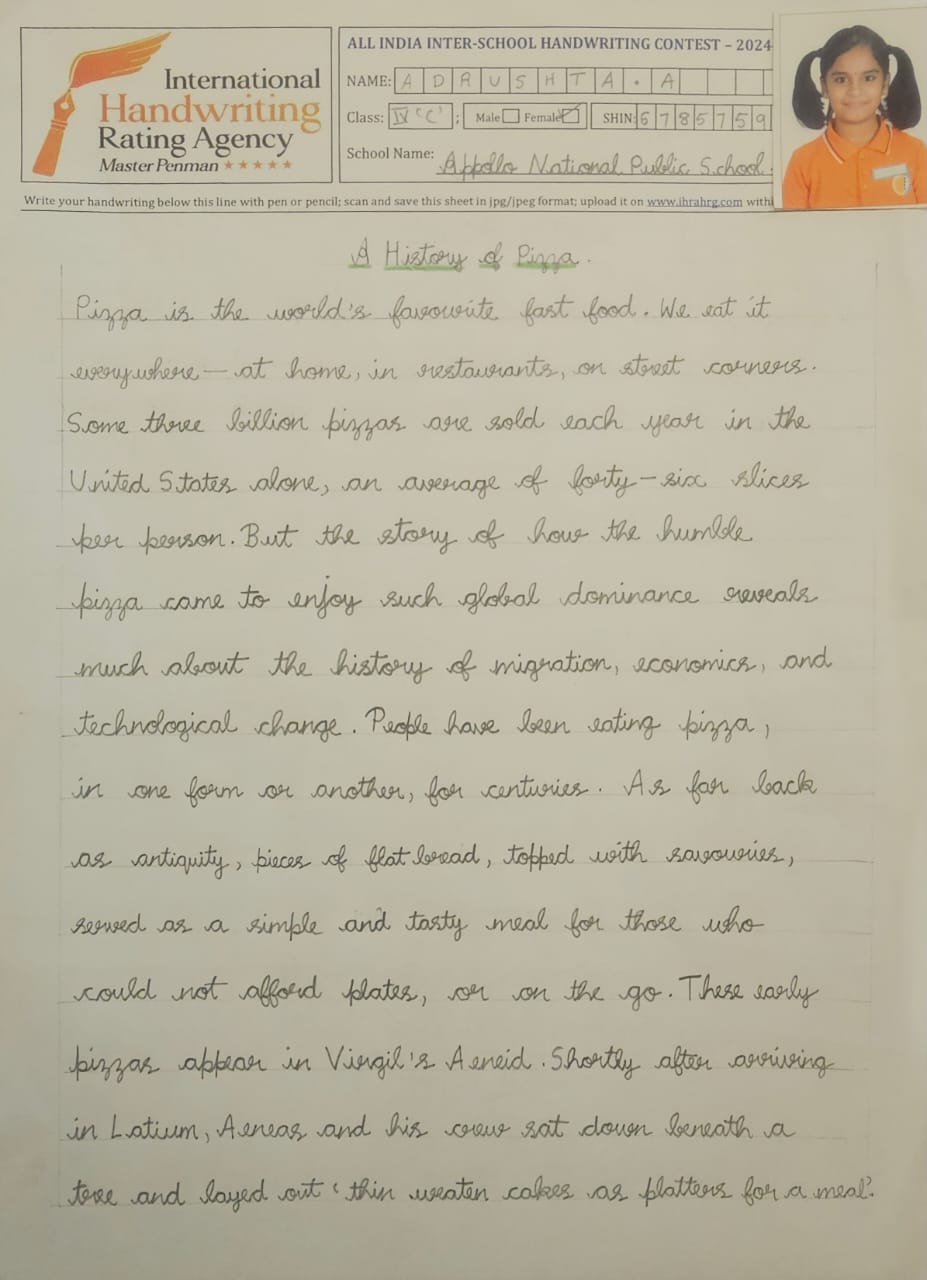 International
Handwriting
Rating Agency
Master Penman
ALL INDIA INTER-SCHOOL HANDWRITING CONTEST – 2024
NAME: ADRUSHTA.A
Class: IV 'C' ; Male Female SHIN: 6785759
School Name: Appollo National Public School.
Write your handwriting below this line with pen or pencil; scan and save this sheet in jpg/jpeg format; upload it on www.ihrahrg.com withi
A History of Pizza.
Pizza is the world's favourite fast food. We eat it
everywhere — at home, in restaurants, on street corners.
Some three billion pizzas are sold each year in the
United States alone, an average of forty – six slices
per person. But the story of how the humble
pizza came to enjoy such global dominance reveals
much about the history of migration, economics, and
technological change. People have been eating pizza,
in one form or another, for centuries. As far back
as antiquity, pieces of flat bread, topped with savouries,
served as a simple and tasty meal for those who
could not afford plates, or on the go. These early
pizzas appear in Virgil's Aeneid. Shortly after arriving
in Latium, Aeneas and his crew sat down beneath a
tree and layed out ‘thin weaten cakes as platters for a meal’.